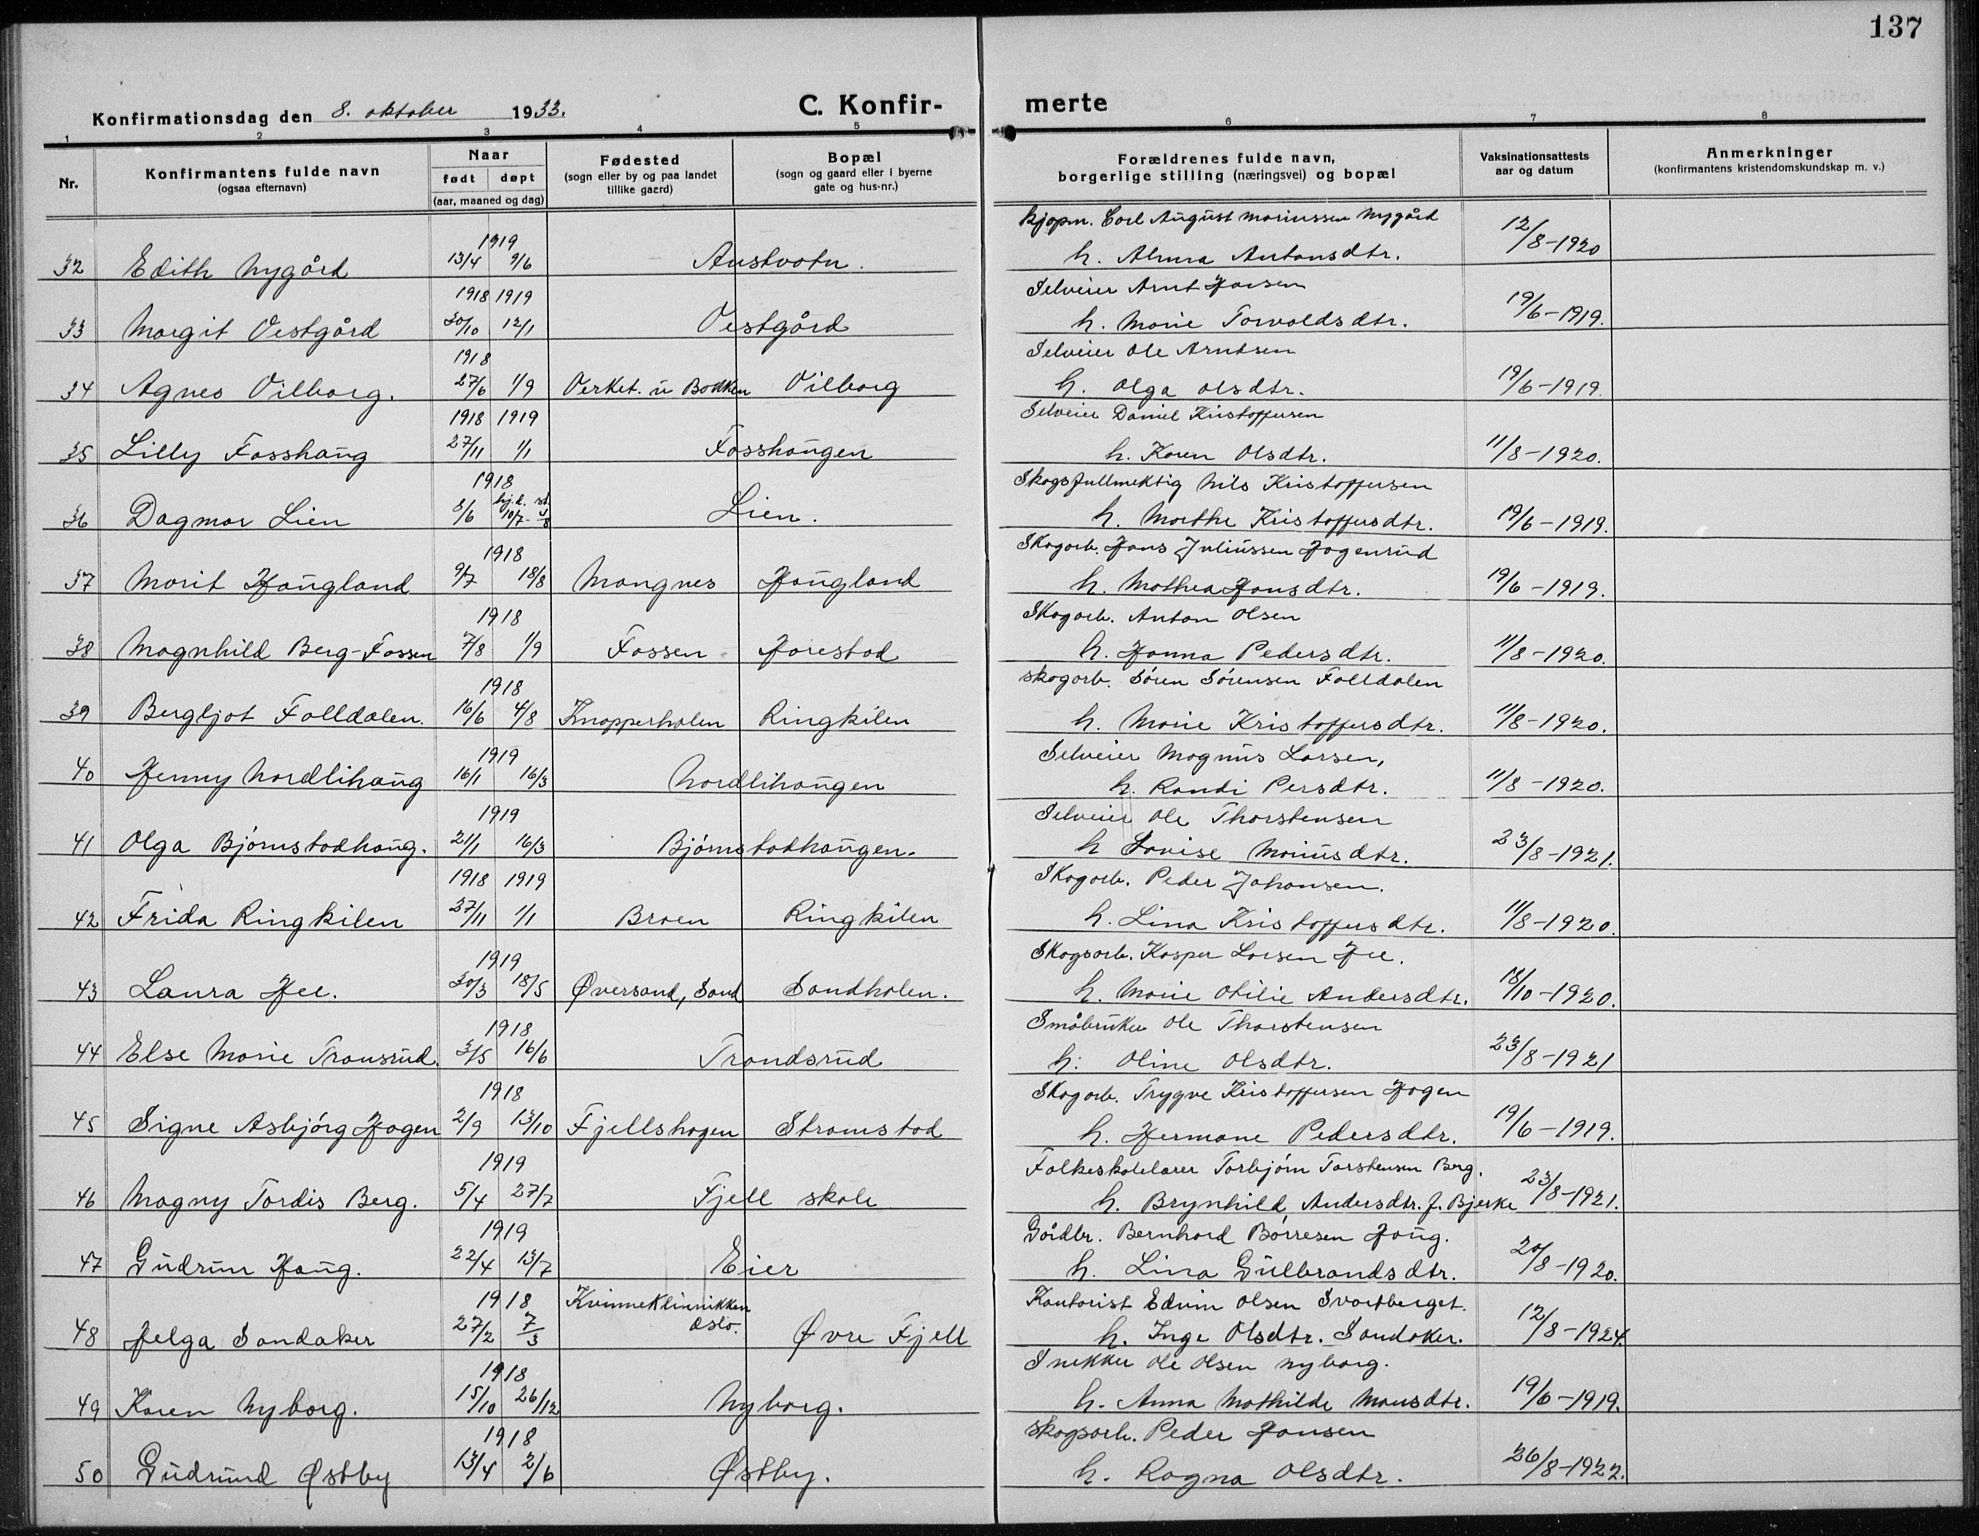 137
Konfirmationsdag den 8. oktober 1933. C. Konfir- merte
1 2 3 4 5 6 7 8
Nr. Konfirmantens fulde navn (ogsaa efternavn) Naar født døpt (aar, maaned og dag) Fødested (sogn eller by og paa landet tillike gaard) Bopæl (sogn og gaard eller i byerne gate og hus-nr.) Forældrenes fulde navn, borgerlige stilling (næringsvei) og bopæl Vaksinationsattests aar og datum Anmerkninger (konfirmantens kristendomskundskap m. v.)
1919 kjøpm. Carl August Mariussen Nygård
32 Edith Nygård 13/4 9/6 Austvatn. h. Alma Antonsdtr. 12/8-1920
1918 1919 Selveier Arnt Hansen
33 Margit Vestgård 30/10 12/1 Vestgård h. Marie Torvaldsdtr. 19/6-1919.
1918 Selveier Ole Arntsen
34 Agnes Vilborg. 27/6 1/9 Verket. u Bakken Vilborg h. Olga Olsdtr. 19/6-1919.
1918 1919 Selveier Daniel Kristoffersen
35 Lilly Fosshaug 27/11 1/1 Fosshaugen h. Karen Olsdtr. 11/8-1920.
1918 Skogsfullmektig Nils Kristoffersen
36 Dagmar Lien 8/6 hj.d. 10/7- Lien. h. Marthe Kristoffersdtr. 19/6-1919.
1918 Skogarb. Hans Juliussen Hagensrud
37 Marit Haugland 9/7 18/8 Mangnes Haugland h. Mathea Hansdtr. 19/6-1919.
1918 Skogarb. Anton Olsen
38 Magnhild Berg-Fossen 7/8 1/9 Fossen Harestad h. Hanna Pedersdtr. 11/8-1920.
1918 skogarb. Søren Sørensen Falldalen
39 Bergljot Falldalen. 16/6 4/8 Knapperholen Ringkilen h. Marie Kristoffersdtr. 11/8-1920.
1919 Selveier Magnus Larsen,
40 Jenny Nordlihaug 16/1 16/3 Nordlihaugen h. Randi Persdtr. 11/8-1920.
1919 Selveier Ole Thorstensen
41 Olga Bjørnstadhaug. 21/1 16/3 Bjørnstadhaugen. h Lovise Mariusdtr. 23/8-1921.
1918 1919 Skogarb. Peder Johansen.
42 Frida Ringkilen 27/11 1/1 Braen Ringkilen h. Lina Kristoffersdtr. 11/8-1920.
1919 Skogsarb. Kasper Larsen Hee.
43 Laura Hee. 30/3 18/5 Øversand, Sand Sandholen. h. Marie Otilie Andersdtr. 18/10-1920.
1918 Småbruker Ole Thorstensen
44 Else Marie Transrud. 3/5 16/6 Trandsrud h. Oline Olsdtr. 23/8-1921
1918 Skogarb. Trygve Kristoffersen Hagen
45 Signe Asbjørg Hagen 2/9 13/10 Fjellshagen Stramstad h. Hermane Pedersdtr. 19/6-1919.
1919 Folkeskolelærer Torbjørn Torstensen Berg.
46 Magny Tordis Berg. 5/4 27/7 Fjell skole h. Brynhild Andersdtr. f. Bjerke 23/8-1921.
1919 Gårdbr. Bernhard Børresen Haug.
47 Gudrun Haug. 22/4 13/7 Eier h. Lina Gulbrandsdtr. 20/8-1920.
1918 Kvinneklinnikken Oslo. Kontorist Edvin Olsen Svartberget.
48 Helga Sandaker 27/2 7/3 Øvre Fjell h. Inga Olsdtr. Sandaker. 12/8-1924.
1918 Snekker Ole Olsen Nyborg.
49 Karen Nyborg. 15/10 26/12 Nyborg. h. Anna Mathilde Mansdtr. 19/6-1919.
1918 Skogsarb. Peder Hansen
50 Gudrund Østby 13/4 2/6 Østby. h. Ragna Olsdtr. 26/8-1922.